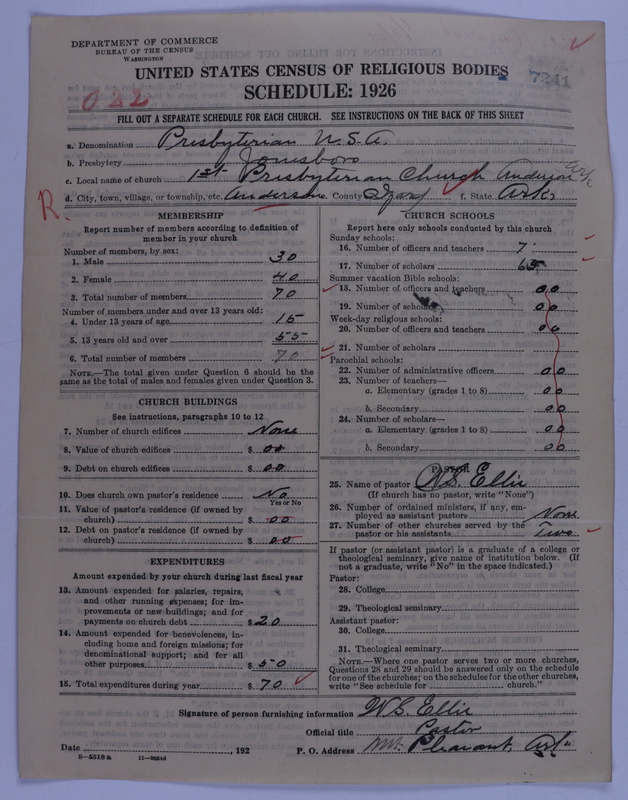 DEPARTMENT OF COMMERCE
BUREAU OF THE CENSUS
WASHINGTON
UNITED STATES CENSUS OF RELIGIOUS BODIES
7241
022
SCHEDULE: 1926
FILL OUT A SEPARATE SCHEDULE FOR EACH CHURCH. SEE INSTRUCTIONS ON THE BACK OF THIS SHEET
a. Denomination Presbyterian U.S.A.
b. Presbytery Jonesboro
c. Local name of church 1st Presbyterian Church Anderson
d. City, town, village, or township, etc. Anderson County Izard f. State Ark.
R.
MEMBERSHIP
Report number of members according to definition of
member in your church
Number of members, by sex:
1. Male 30
2. Female 40
3. Total number of members 70
Number of members under and over 13 years old:
4. Under 13 years of age 15
5. 13 years old and over 55
6. Total number of members 70
NOTE.—The total given under Question 6 should be
same as the total of males and females given under Question 3.
CHURCH BUILDINGS
See instructions, paragraphs 10 to 12
7. Number of church edifices None
8. Value of church edifices $ 00
9. Debt on church edifices $ 00
10. Does church own pastor's residence No
Yes or No
11. Value of pastor's residence (if owned by
church) $ 00
12. Debt on pastor's residence (if owned by
church) $ 00
EXPENDITURES
Amount expended by your church during last fiscal year
13. Amount expended for salaries, repairs,
and other running expenses; for im-
provements or new buildings; and for
payments on church debt $ 20
14. Amount expended for benevolences, in-
cluding home and foreign missions; for
denominational support; and for all
other purposes $ 50
15. Total expenditures during year $ 70
CHURCH SCHOOLS
Report here only schools conducted by this church
Sunday schools:
16. Number of officers and teachers 7
17. Number of scholars 65
Summer vacation Bible schools:
18. Number of officers and teachers 00
19. Number of scholars 00
Week-day religious schools:
20. Number of officers and teachers 00
21. Number of scholars
Parochial schools:
22. Number of administrative officers 00
23. Number of teachers—
a. Elementary (grades 1 to 8) 00
b. Secondary 00
24. Number of scholars—
a. Elementary (grades 1 to 8) 00
b. Secondary 00
PASTOR
25. Name of pastor W.S. Ellis
(If church has no pastor, write "None")
26. Number of ordained ministers, if any, em-
ployed as assistant pastors None
27. Number of other churches served by the
pastor or his assistants Two
If pastor (or assistant pastor) is a graduate of a college or
theological seminary, give name of institution below. (If
not a graduate, write "No" in the space indicated.)
Pastor:
28. College
29. Theological seminary
Assistant pastor:
30. College
31. Theological seminary
NOTE.—Where one pastor serves two or more churches,
Questions 28 and 29 should be answered only on the schedule
for one of the churches; on the schedules for the other churches,
write "See schedule for church."
Signature of person furnishing information W.S. Ellis
Official title Pastor
Date , 192 P. O. Address Mt. Pleasant, Ark.
8—5518a